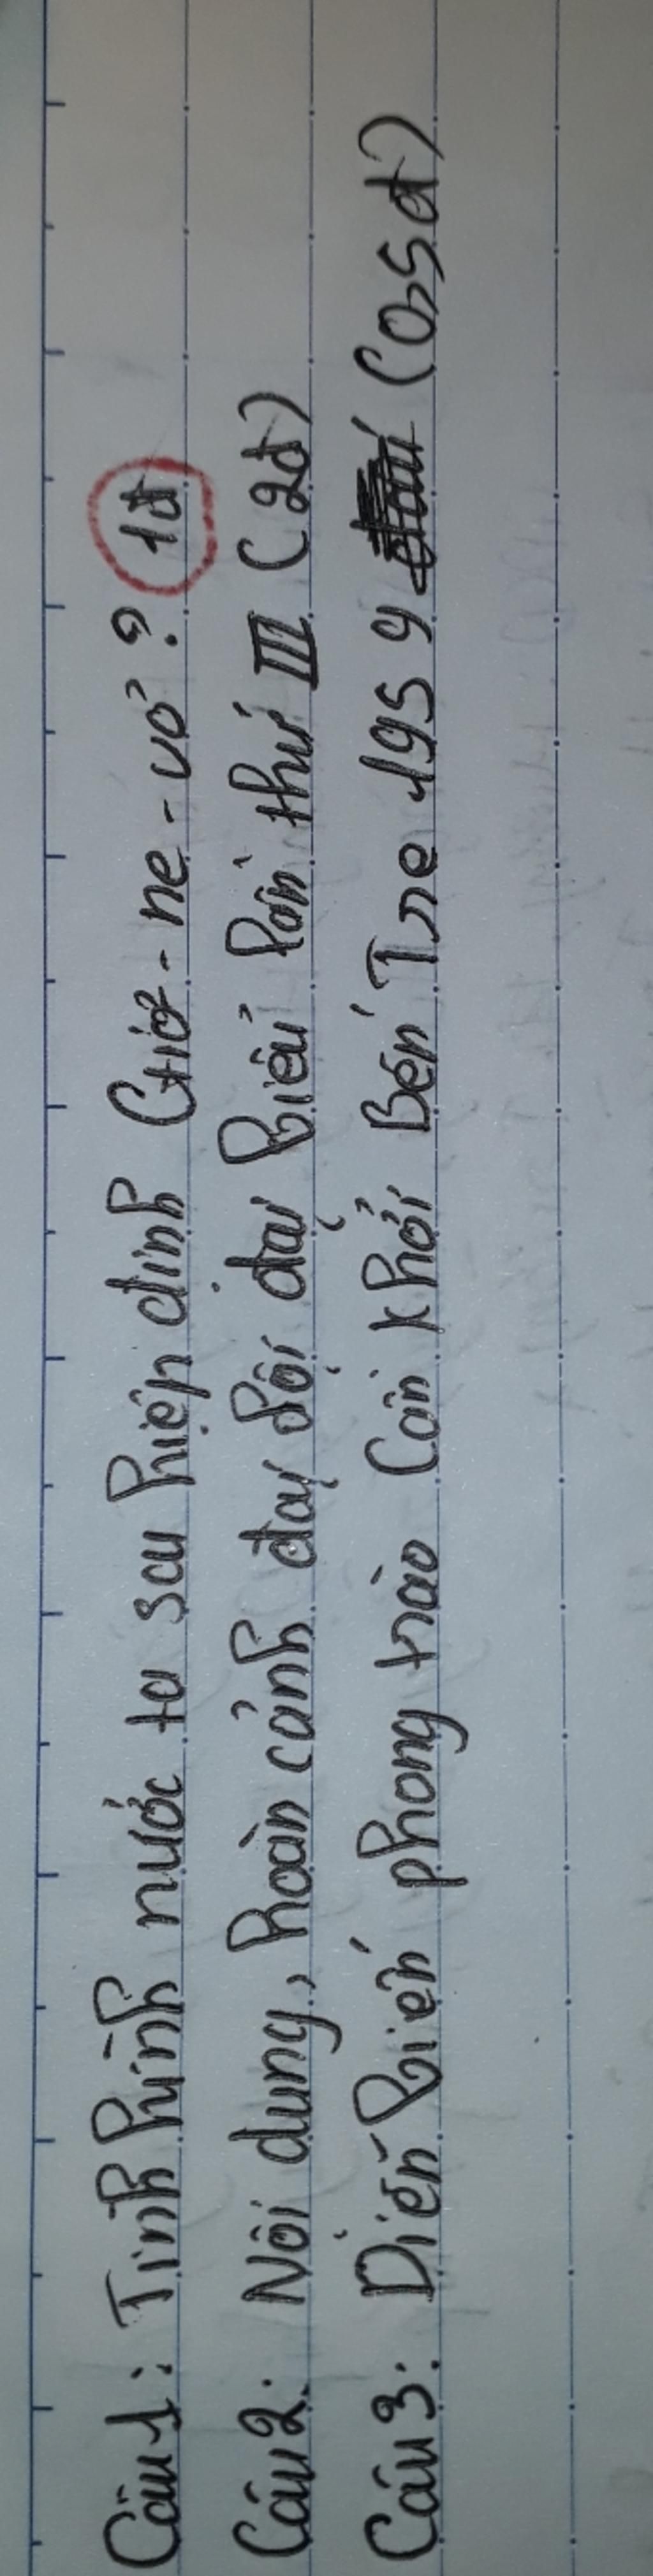 Câu 1: Tình hình nước ta sau hiệp định Giơ-ne-vơ? 1đ
Câu 2: Nội dung, hoàn cảnh đại hội đại biểu lần thứ III (2đ)
Câu 3: Diễn biến phong trào Cần khởi Bến Tre 1959 (0,5đ)